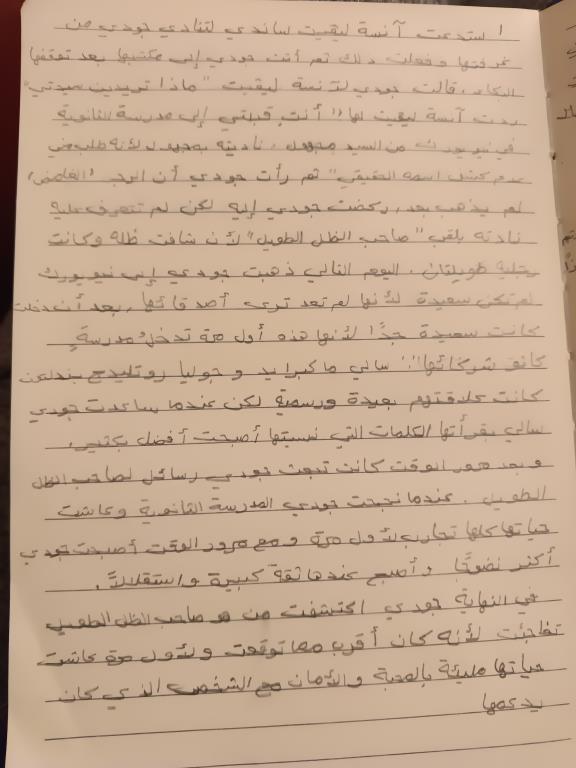 استدعت آنسة ليقيت ساندي لتنادي جودي من
غرفتها وفعلت ذلك ثم أتت جودي إلى مكتبها بعد توقفها
البكاء، قالت جودي لآنسة ليقيت "ماذا تريدين سيدتي"
ردت آنسة ليقيت لها "أنتِ قبلتي إلى مدرسة الثانوية
في نيويورك من السيد مجهول، ناديته بجديد لأنه طلب مني
عدم كشف اسمه الحقيقي" ثم رأت جودي أن الرجل "الغامض"
لم يذهب بعد، ركضت جودي إليه لكن لم تتعرف عليه
نادته بلقب "صاحب الظل الطويل" لأن شافت ظله وكانت
رجليه طويلتان. اليوم التالي ذهبت جودي إلى نيويورك
لم تكن سعيدة لأنها لم تعد ترى أصدقائها، بعد أن دخلت
كانت سعيدة جدًا لأنها هذه أول مرة تدخل مدرسةٍ
كانو شركائها: سالي ماكبرايد وجوليا روتليدج بندلتون
كانت علاقتهم بعيدة ورسمية لكن عندما ساعدت جودي
سالي بقرأتها الكلمات التي نسيتها أصبحت أفضل بكثير.
وبعد مرور الوقت كانت تبعت جودي رسائل لصاحب الظل
الطويل. عندما نجحت جودي المدرسة الثانوية وعاشت
حياتها كلها تجارب لأول مرة ومع مرور الوقت أصبحت جودي
أكثر نضوجًا وأصبح عندها ثقة كبيرة واستقلالاً.
في النهاية جودي اكتشفت من هو صاحب الظل الطويل
تفاجئت لأنه كان أقرب مما توقعت ولأول مرة عاشت
حياتها مليئة بالمحبة والأمان مع الشخص الذي كان
يدعمها